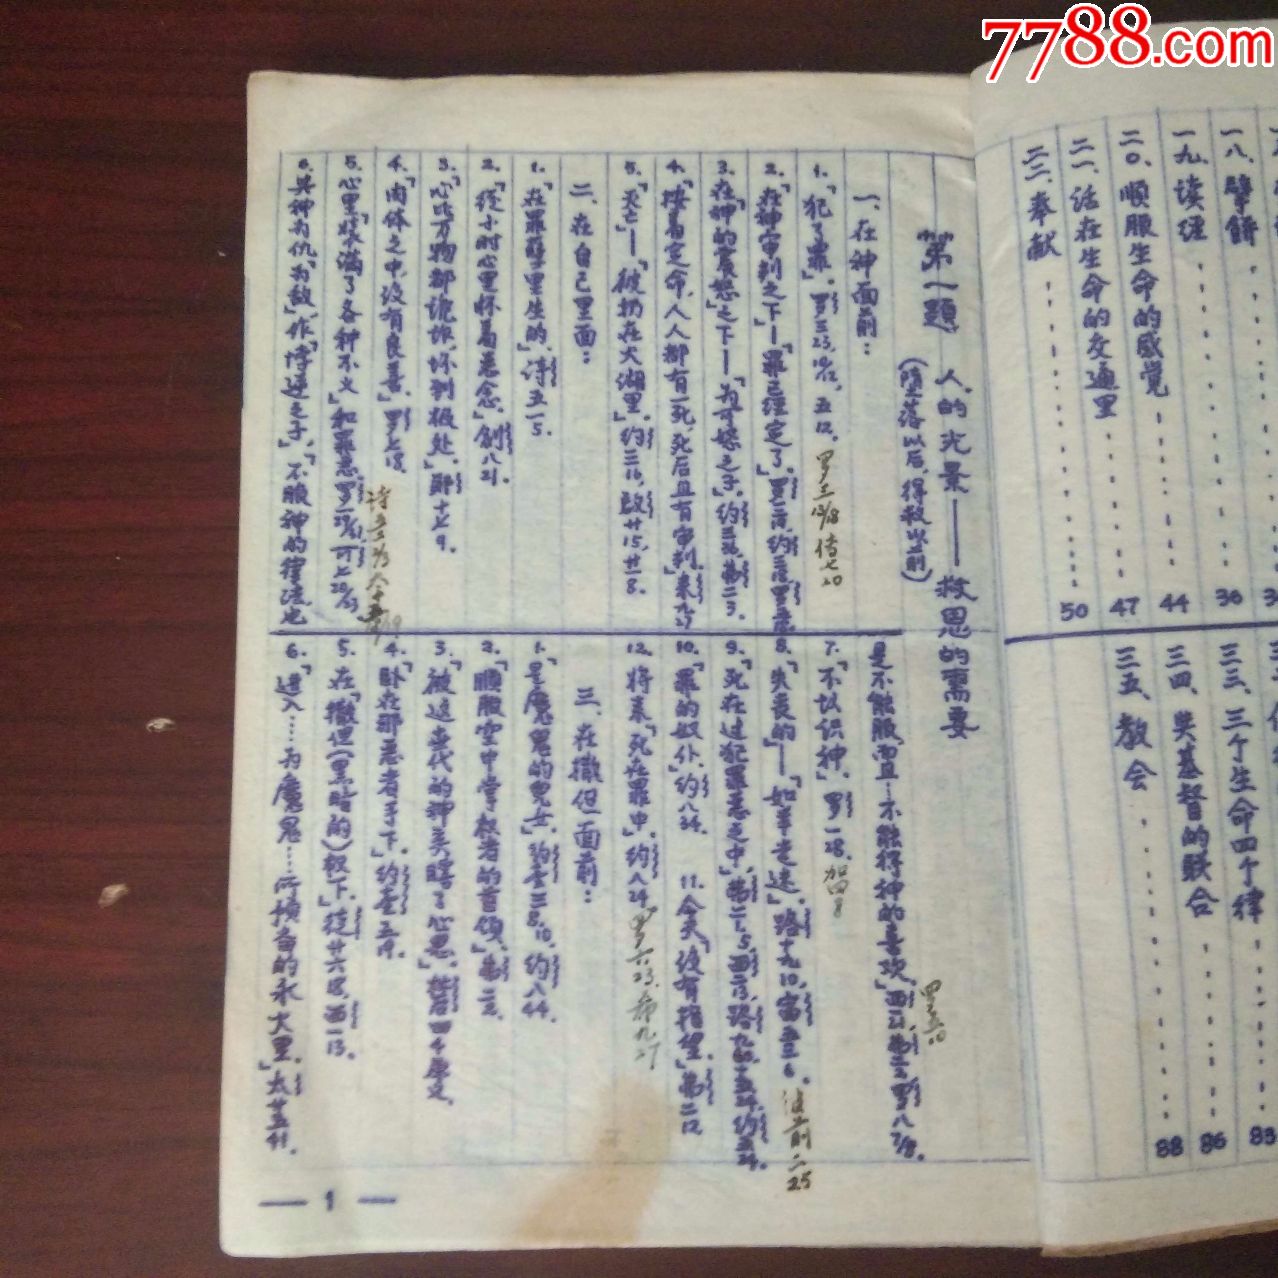 7788.com
一八、擘餅 36
一九、读经 44
二〇、順服生命的感觉 47
二一、活在生命的交通里 50
二二、奉献
三三、三个生命四个律 83
三四、與基督的联合 86
三五、教会 88
第一題 人的光景——救恩的需要
(墮落以后,得救以前)
一、在神面前:
1.「犯了罪」
2.「在神审判之下」—「罪已经定了」
3.在「神的震怒之下」—「为可怒之子」
4.「按着定命,人人都有一死,死后且有审判」来九27
5.「灭亡」—「被扔在火湖里」约三16,啟廿15,廿一8.
二、在自己里面:
1.「在罪孽里生的」诗五一5.
2.「從小时心里怀着恶念」創八21.
3.「心比万物都诡诈,坏到极处」耶十七9.
4.「肉体之中,没有良善」罗七18.
5.心里「装满了各种不义」和罪恶
6.與神为仇「为敌」作「悖逆之子」「不服神的律法,也
是不能服,而且…不能得神的喜欢」
7.「不认识神」罗一28.加四8
8.「失丧的」—「如羊走迷」路十九10,賽五三6.
彼前二25
9.「死在过犯罪恶之中」
10.「罪的奴仆」约八34. 11.今天「没有指望」弗二12
12.将来「死在罪中」约八24.罗六23.希九27
三、在撒但面前:
1.「是魔鬼的兒女」约壹三8,10,约八44.
2.「順服空中掌权者的首领」弗二2.
3.「被这世代的神弄瞎了心思」林后四4原文
4.「卧在那恶者手下」约壹五19.
5.在「撒但(黑暗的)权下」徒廿六18,西一13.
6.「进入……为魔鬼…所预备的永火里」太廿五41.
— 1 —